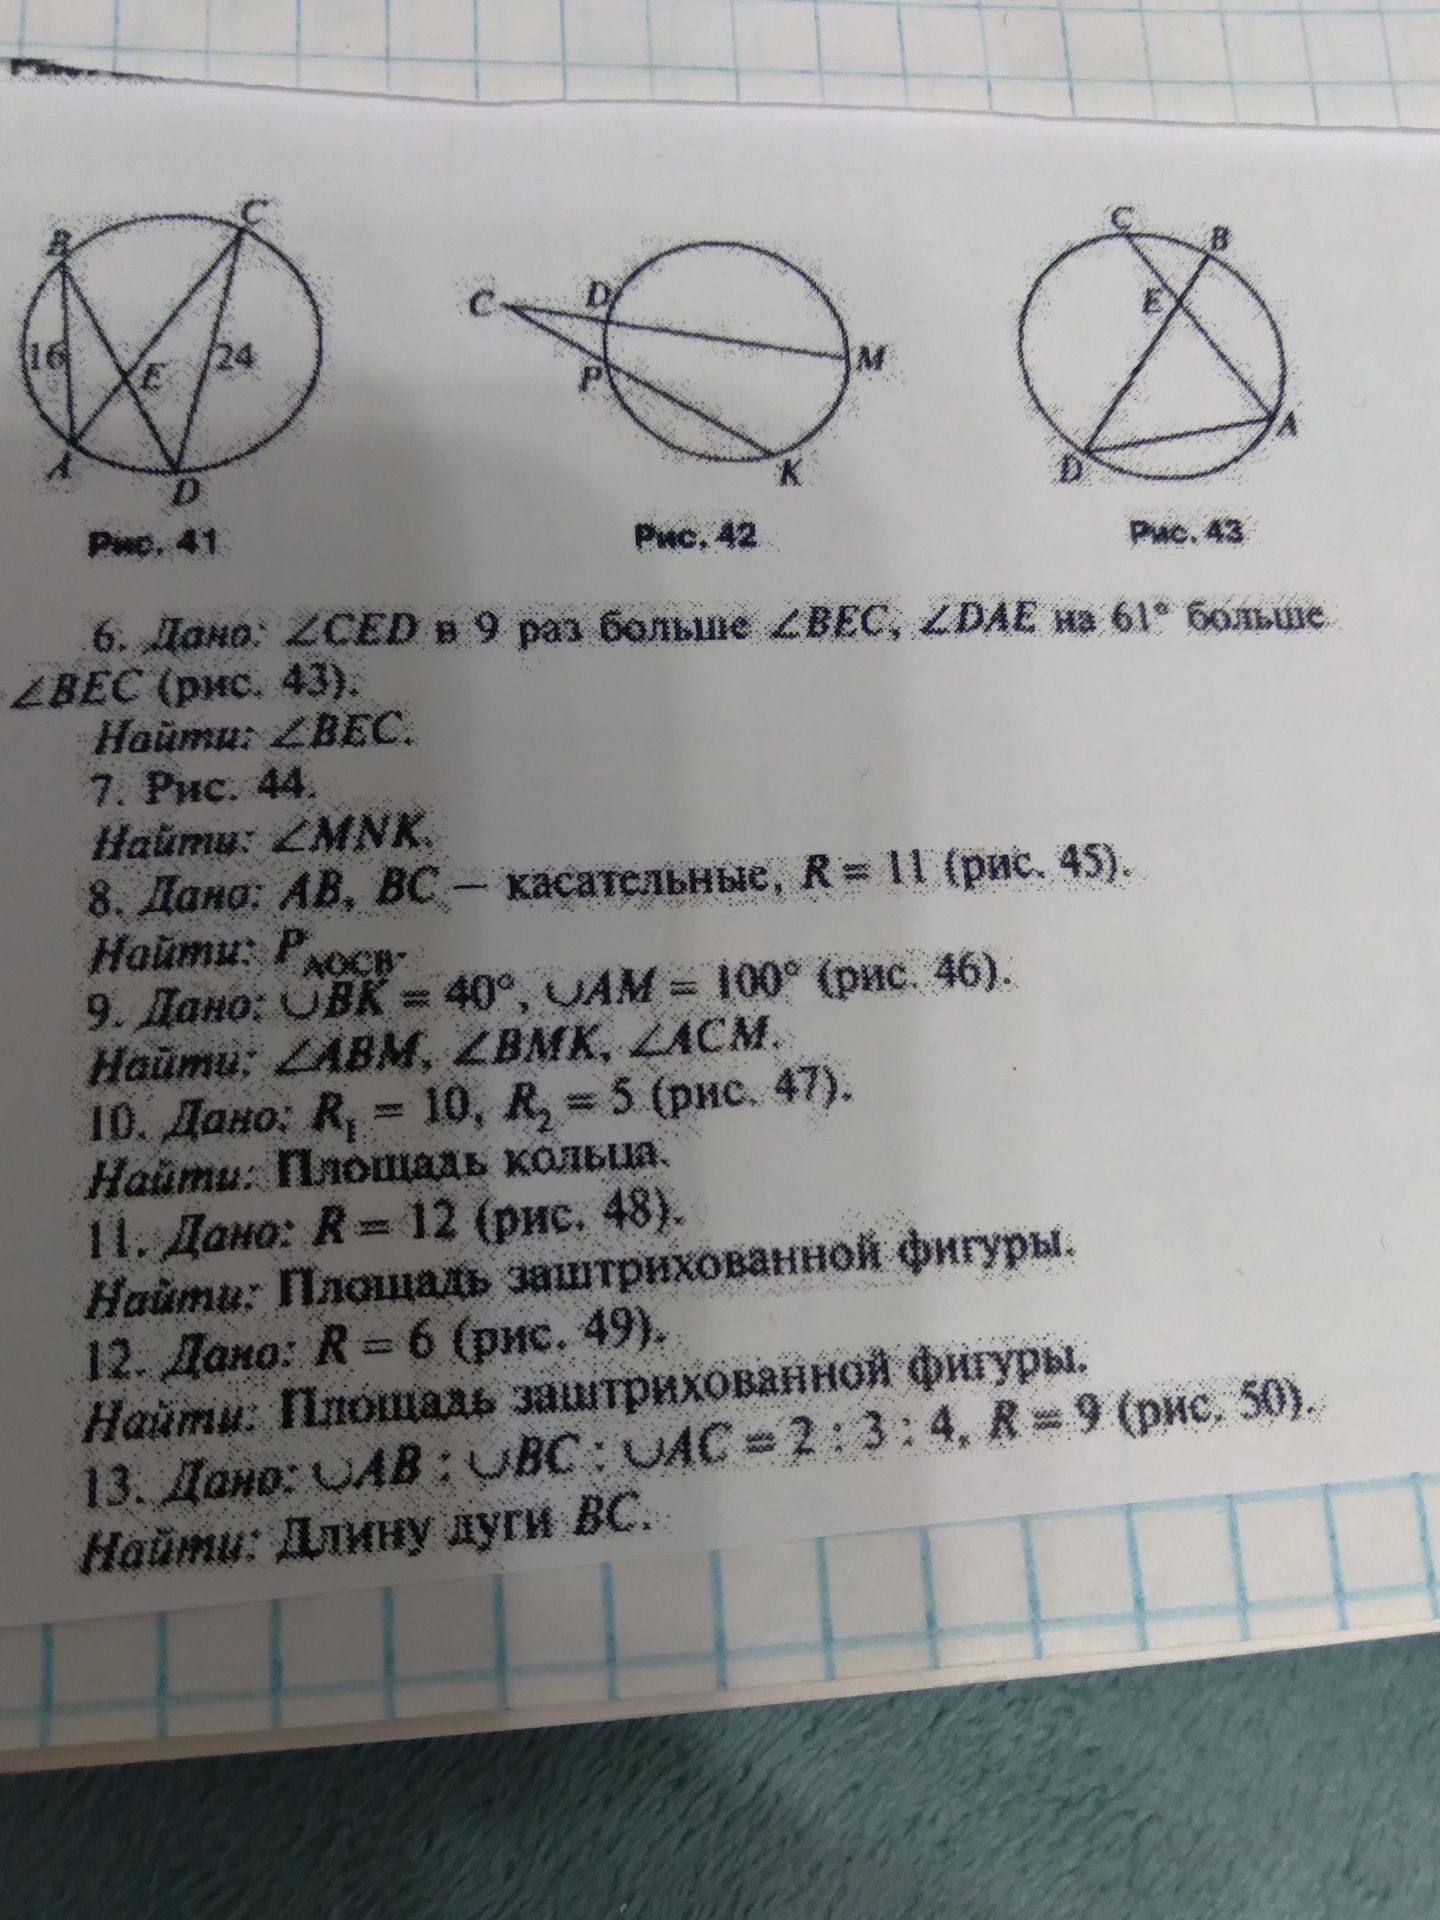 B
C
16
E
24
A
D
Рис. 41
C
D
P
M
K
Рис. 42
C
B
E
A
D
Рис. 43
6. Дано: ∠CED в 9 раз больше ∠BEC, ∠DAE на 61° больше
∠BEC (рис. 43).
Найти: ∠BEC.
7. Рис. 44.
Найти: ∠MNK.
8. Дано: AB, BC — касательные, R = 11 (рис. 45).
Найти: P_AOCB.
9. Дано: ∪BK = 40°, ∪AM = 100° (рис. 46).
Найти: ∠ABM, ∠BMK, ∠ACM.
10. Дано: R₁ = 10, R₂ = 5 (рис. 47).
Найти: Площадь кольца.
11. Дано: R = 12 (рис. 48).
Найти: Площадь заштрихованной фигуры.
12. Дано: R = 6 (рис. 49).
Найти: Площадь заштрихованной фигуры.
13. Дано: ∪AB : ∪BC : ∪AC = 2 : 3 : 4, R = 9 (рис. 50).
Найти: Длину дуги BC.